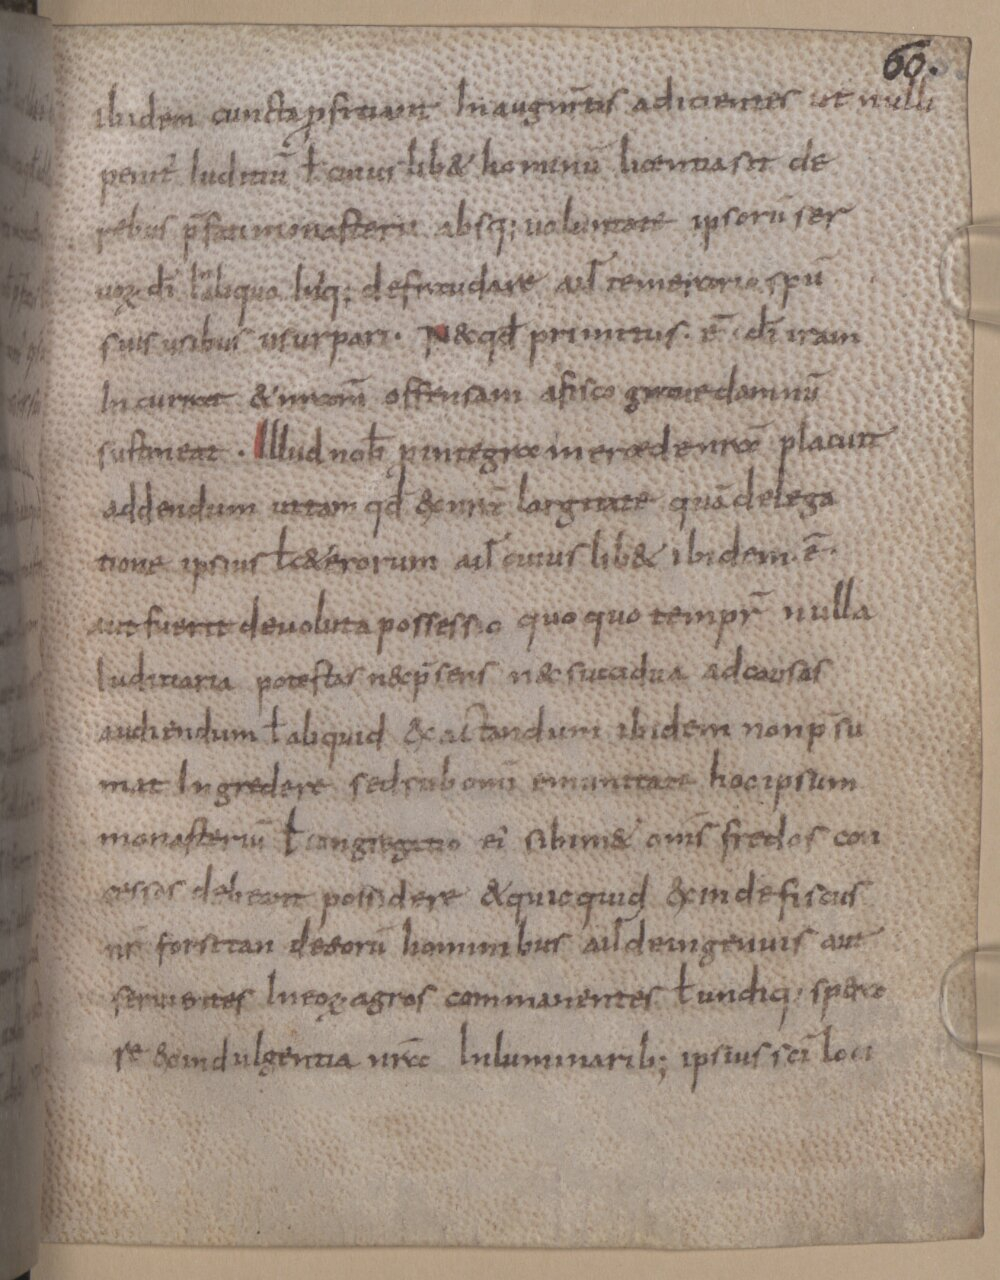 60.
ibidem cuncta ꝓficiant In augm̄tis adicientes ut nulli
penit᷒ Iuditiū ł cuius lib& hominū licentia sit de
rebus p̄fati monasterii absq; voluntate ipsorū ser
uoꝝ dī aliquo defraudare aut temerario spū
suis usibus usurpari. N&qđ primitus. ē. dī iram
Incurrat & nr̄am offensam a fisco grave damnū
sustineat. Illud nob̄ ꝓ integra mercede nr̄a placuit
addendum ut tam qđ &nr̄a largitate quā delega
tione ipsius ł c&erorum aut cuius lib& ibidem. ē.
aut fuerit devoluta possessio quo quo tempr̄ nulla
Iuditiaria potestas n&p̄sens n&succidua ad causas
audiendum ł aliquid &actandum ibidem non p̄su
mat Ingredere sed sub omī emunitate hoc ipsum
monasteriū ł congregatio ei sibim& om̄s fredos con
cessos debeant possidere &quicquid &inde fiscus
nr̄ forsitan de eorū hominibus aut de ingenuis aut
servientes In eoꝝ agros commanentes ł undiq; spera
re &indulgentia nr̄a In luminarib; ipsius sc̄i loci